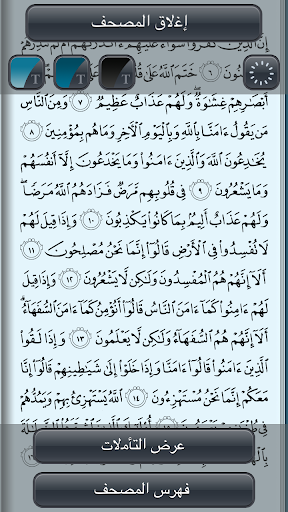 إغلاق المصحف
إِنَّ الَّذِينَ كَفَرُوا سَوَاءٌ عَلَيْهِمْ ءَأَنذَرْتَهُمْ أَمْ لَمْ تُنذِرْهُمْ
٦ خَتَمَ اللَّهُ عَلَىٰ
T T
أَبْصَٰرِهِمْ غِشَٰوَةٌ وَلَهُمْ عَذَابٌ عَظِيمٌ ٧ وَمِنَ النَّاسِ
مَن يَقُولُ ءَامَنَّا بِاللَّهِ وَبِالْيَوْمِ الْءَاخِرِ وَمَا هُم بِمُؤْمِنِينَ ٨
يُخَٰدِعُونَ اللَّهَ وَالَّذِينَ ءَامَنُوا وَمَا يَخْدَعُونَ إِلَّا أَنفُسَهُمْ
وَمَا يَشْعُرُونَ ٩ فِي قُلُوبِهِم مَّرَضٌ فَزَادَهُمُ اللَّهُ مَرَضًا
وَلَهُمْ عَذَابٌ أَلِيمٌ بِمَا كَانُوا يَكْذِبُونَ ١٠ وَإِذَا قِيلَ لَهُمْ
لَا تُفْسِدُوا فِي الْأَرْضِ قَالُوا إِنَّمَا نَحْنُ مُصْلِحُونَ ١١
أَلَا إِنَّهُمْ هُمُ الْمُفْسِدُونَ وَلَٰكِن لَّا يَشْعُرُونَ ١٢ وَإِذَا قِيلَ
لَهُمْ ءَامِنُوا كَمَا ءَامَنَ النَّاسُ قَالُوا أَنُؤْمِنُ كَمَا ءَامَنَ السُّفَهَاءُ
أَلَا إِنَّهُمْ هُمُ السُّفَهَاءُ وَلَٰكِن لَّا يَعْلَمُونَ ١٣ وَإِذَا لَقُوا
الَّذِينَ ءَامَنُوا قَالُوا ءَامَنَّا وَإِذَا خَلَوْا إِلَىٰ شَيَٰطِينِهِمْ قَالُوا إِنَّا
مَعَكُمْ إِنَّمَا نَحْنُ مُسْتَهْزِءُونَ ١٤ اللَّهُ يَسْتَهْزِئُ بِهِمْ وَيَمُدُّهُمْ
عرض التأملات
فهرس المصحف